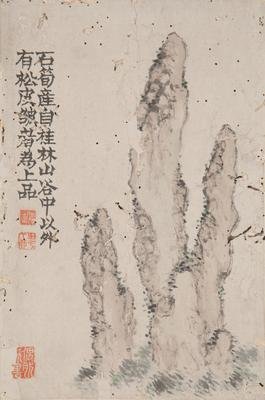 石筍產自桂林山谷中以外
有松皮皴落為上品